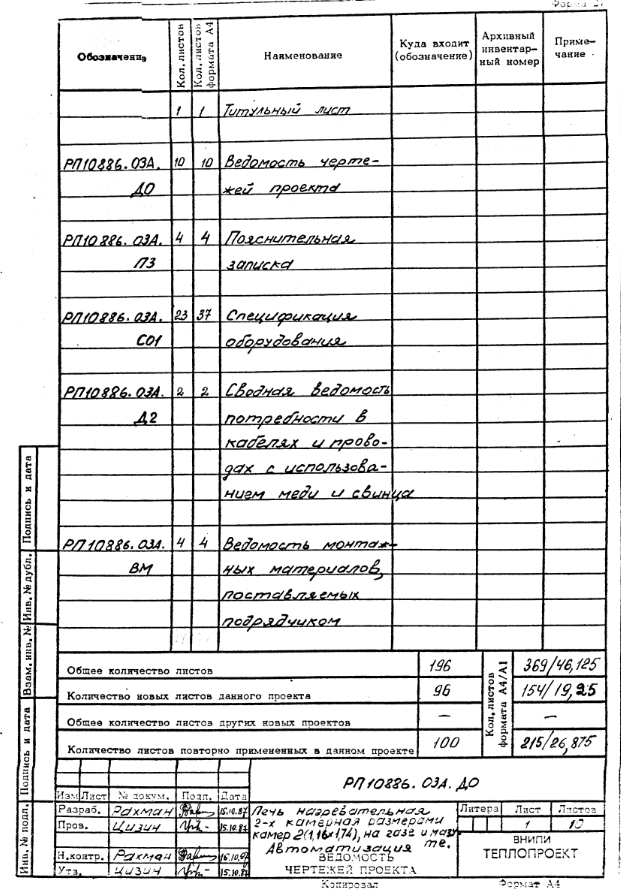 Форма 27
Обозначение
Кол. листов
Кол. листов формата А4
Наименование
Куда входит (обозначение)
Архивный инвентарный номер
Примечание
1 1 Титульный лист
РП10886.03А. 10 10 Ведомость черте-
ДО жей проекта
РП10886.03А. 4 4 Пояснительная
ПЗ записка
РП10886.03А. 23 37 Спецификация
СО1 оборудования
РП10886.03А. 2 2 Сводная ведомость
Д2 потребности в
кабелях и прово-
дах с использова-
нием меди и свинца
РП10886.03А. 4 4 Ведомость монтаж-
ВМ ных материалов,
поставляемых
подрядчиком
Общее количество листов 196
Количество новых листов данного проекта 96
Общее количество листов других новых проектов —
Количество листов повторно примененных в данном проекте 100
Кол. листов формата А4/А1
369/46,125
154/19,25
—
215/26,875
РП10886.03А.ДО
Изм Лист № докум. Подп. Дата
Разраб. Рахман 15.10.87
Пров. Цизин 15.10.87
Н.контр. Рахман 16.10.87
Утв. Цизин 15.10.87
Печь нагревательная
2-х камерная размерами
камер 2(1,16×1,74), на газе и мазу-
те.
Автоматизация
ВЕДОМОСТЬ
ЧЕРТЕЖЕЙ ПРОЕКТА
Литера Лист Листов
1 10
ВНИПИ
ТЕПЛОПРОЕКТ
Копировал Формат А4
Инв. № подл.
Подпись и дата
Взам. инв. №
Инв. № дубл.
Подпись и дата